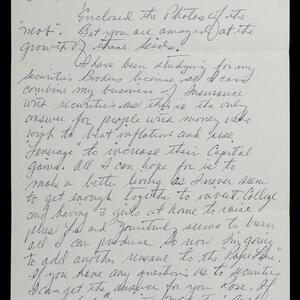 Enclosed the Photos of the
"mob". Bet you are amazed at the
growth of these kids.
I have been studying for my
Securities Brokers license so I can
combine my business of Insurance
with securities as this is the only
answer for people with money who
wish to beat inflation and use
"Leverage" to increase their Capital
gains. All I can hope for is to
make a better living as I never seem
to get enough together to invest. College
and having 3 girls at home to raise
plus and yourself seems to burn
all I can produce. So now I'm going
to add another revenue to the
If you have any questions as to securities
I can get the answer for you Rose. If